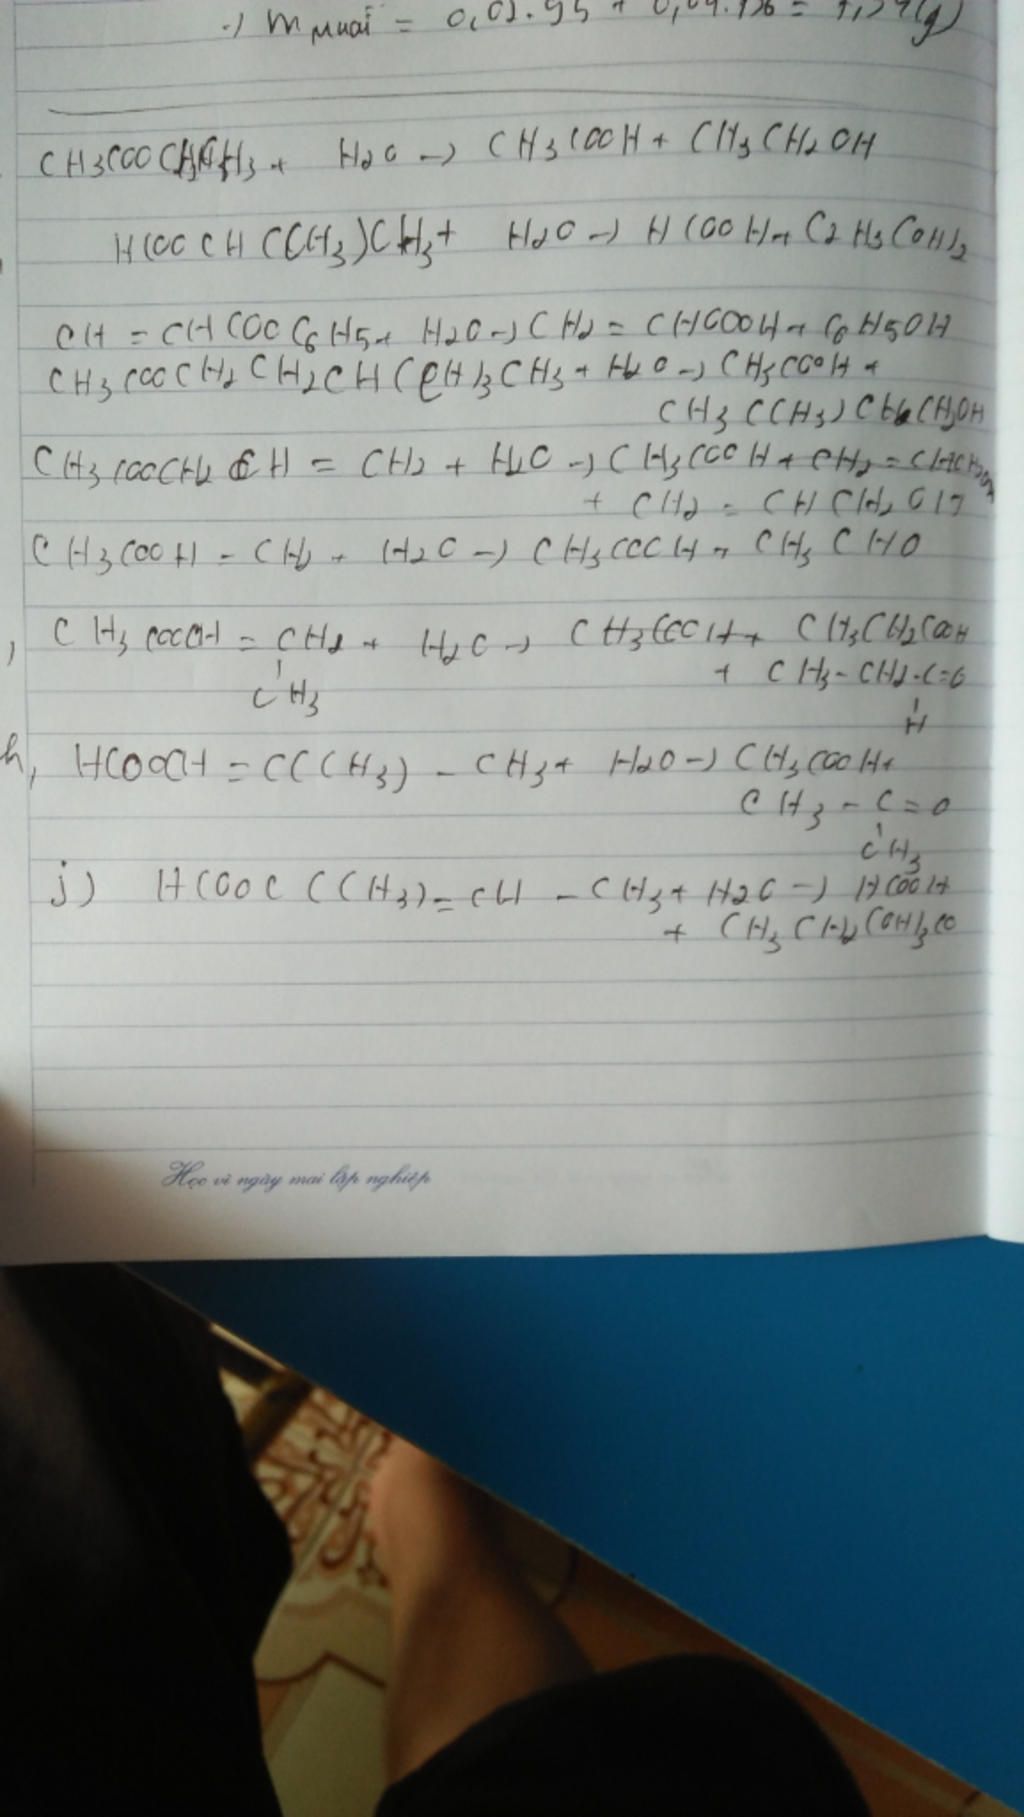 ·) m muối = 0,02.95 + 0,04.136 = 7,34(g)
CH3COOCH2CH3 + H2O → CH3COOH + CH3CH2OH
HCOOCH(CH3)CH3 + H2O → HCOOH + C2H3(OH)2
CH = CHCOOC6H5 + H2O → CH2 = CHCOOH + C6H5OH
CH3COOCH2CH2CH(CH)3CH3 + H2O → CH3COOH +
CH3C(CH3)CH2CH2OH
CH3COOCH2CH = CH2 + H2O → CH3COOH
+ CH2 = CHCH2OH
CH3COOH - CH2 + H2O → CH3COOH + CH3CHO
, CH3COOCH = CH2 + H2O → CH3COOH + CH3CH2COOH
CH3 + CH3 - CH2 - C=O
H
h, HCOOCH = C(CH3) - CH3 + H2O → CH3COOH +
CH3 - C = O
CH3
j) HCOOC(CH3) = CH - CH3 + H2O → HCOOH
+ CH3CH2(OH)3CO
Học vì ngày mai lập nghiệp